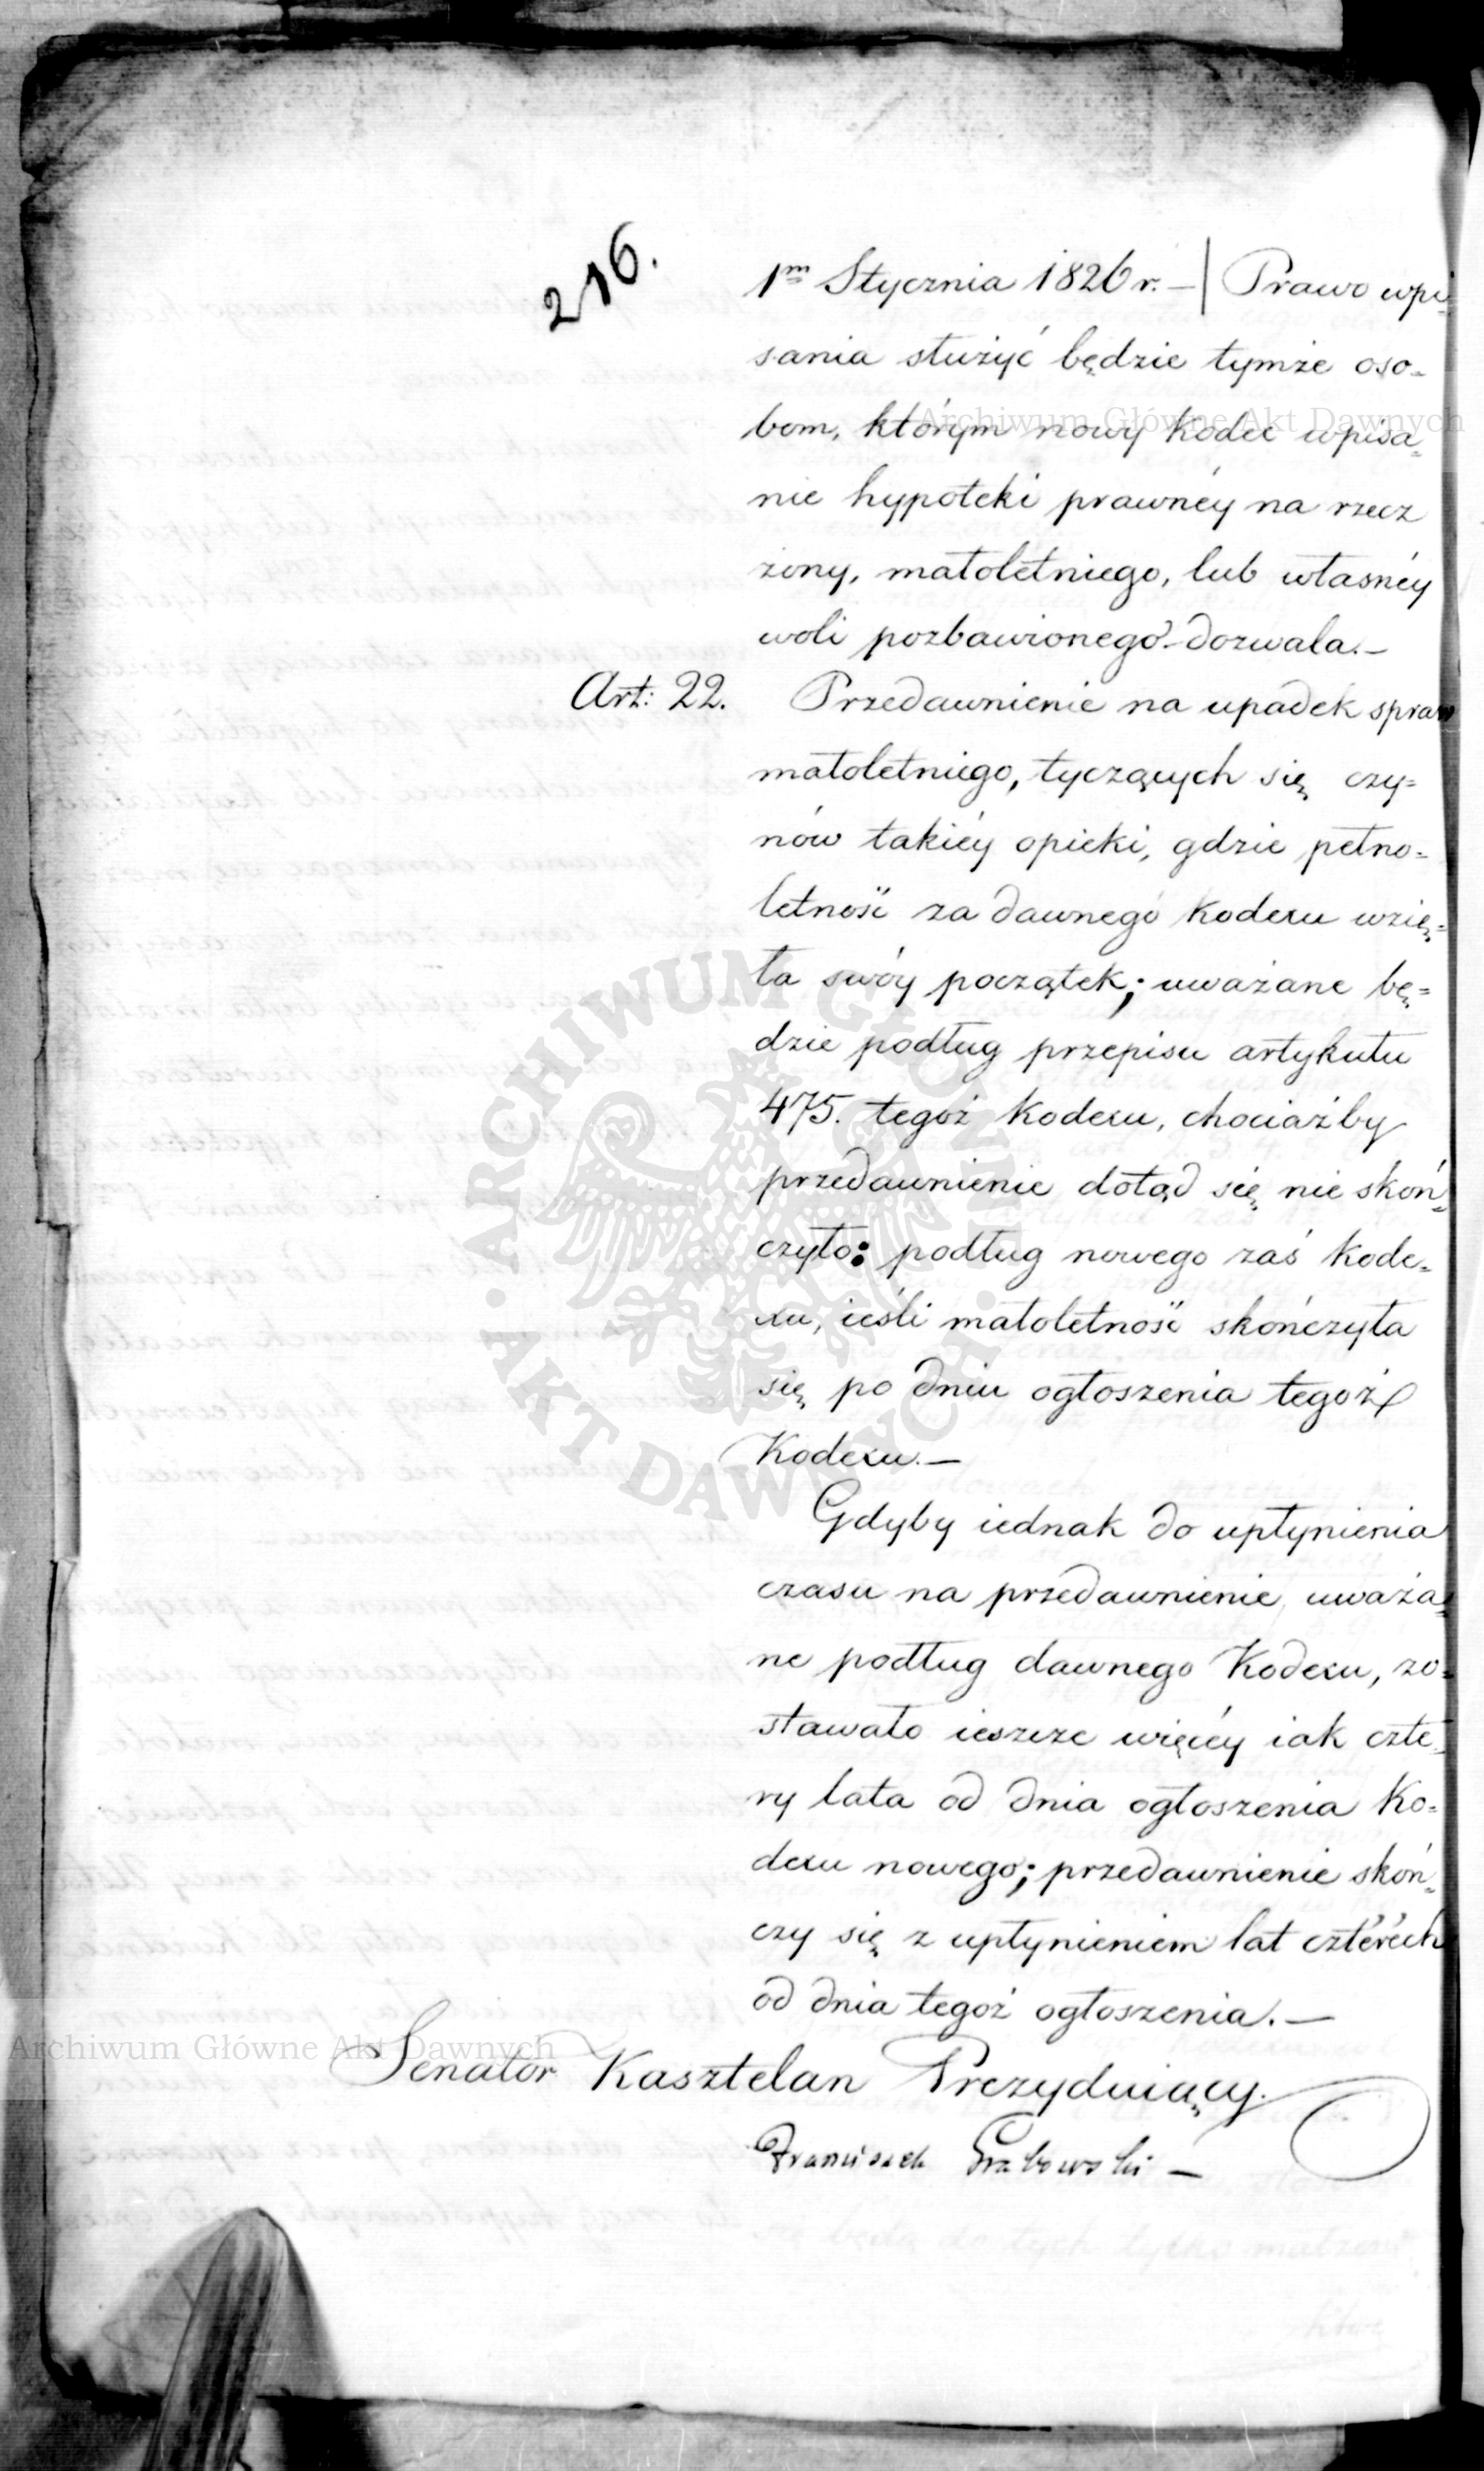 216.
1m Stycznia 1826 r. — | Prawo wpi
sania służyć będzie tymże oso=
bom, którym nowy Kodex wpisa=
nie hypoteki prawnéy na rzecz
żony, małoletniego, lub własnéy
woli pozbawionego dozwala. —
Art: 22. Przedawnienie na upadek spraw
małoletniego, tyczących się czy=
nów takiéy opieki, gdzie pełno=
letność za dawnego Kodexu wzię=
ła swóy początek; uważane bę=
dzie podług przepisu artykułu
475. tegoż Kodexu, chociażby
przedawnienie dotąd się nie skoń=
czyło: podług nowego zaś Kode=
xu, ieśli małoletność skończyła
się po dniu ogłoszenia tegoż
Kodexu. —
Gdyby iednak do upłynienia
czasu na przedawnienie uważa=
ne podług dawnego Kodexu, zo=
stawało ieszcze więcéy iak czte=
ry lata od dnia ogłoszenia Ko=
dexu nowego; przedawnienie skoń=
czy się z upłynieniem lat cztérech
od dnia tegoż ogłoszenia. —
Senator Kasztelan Prezyduiący.
Franciszek Grabowski —
Archiwum Główne Akt Dawnych
ARCHIWUM GŁÓWNE · AKT DAWNYCH ·
Archiwum Główne Akt Dawnych